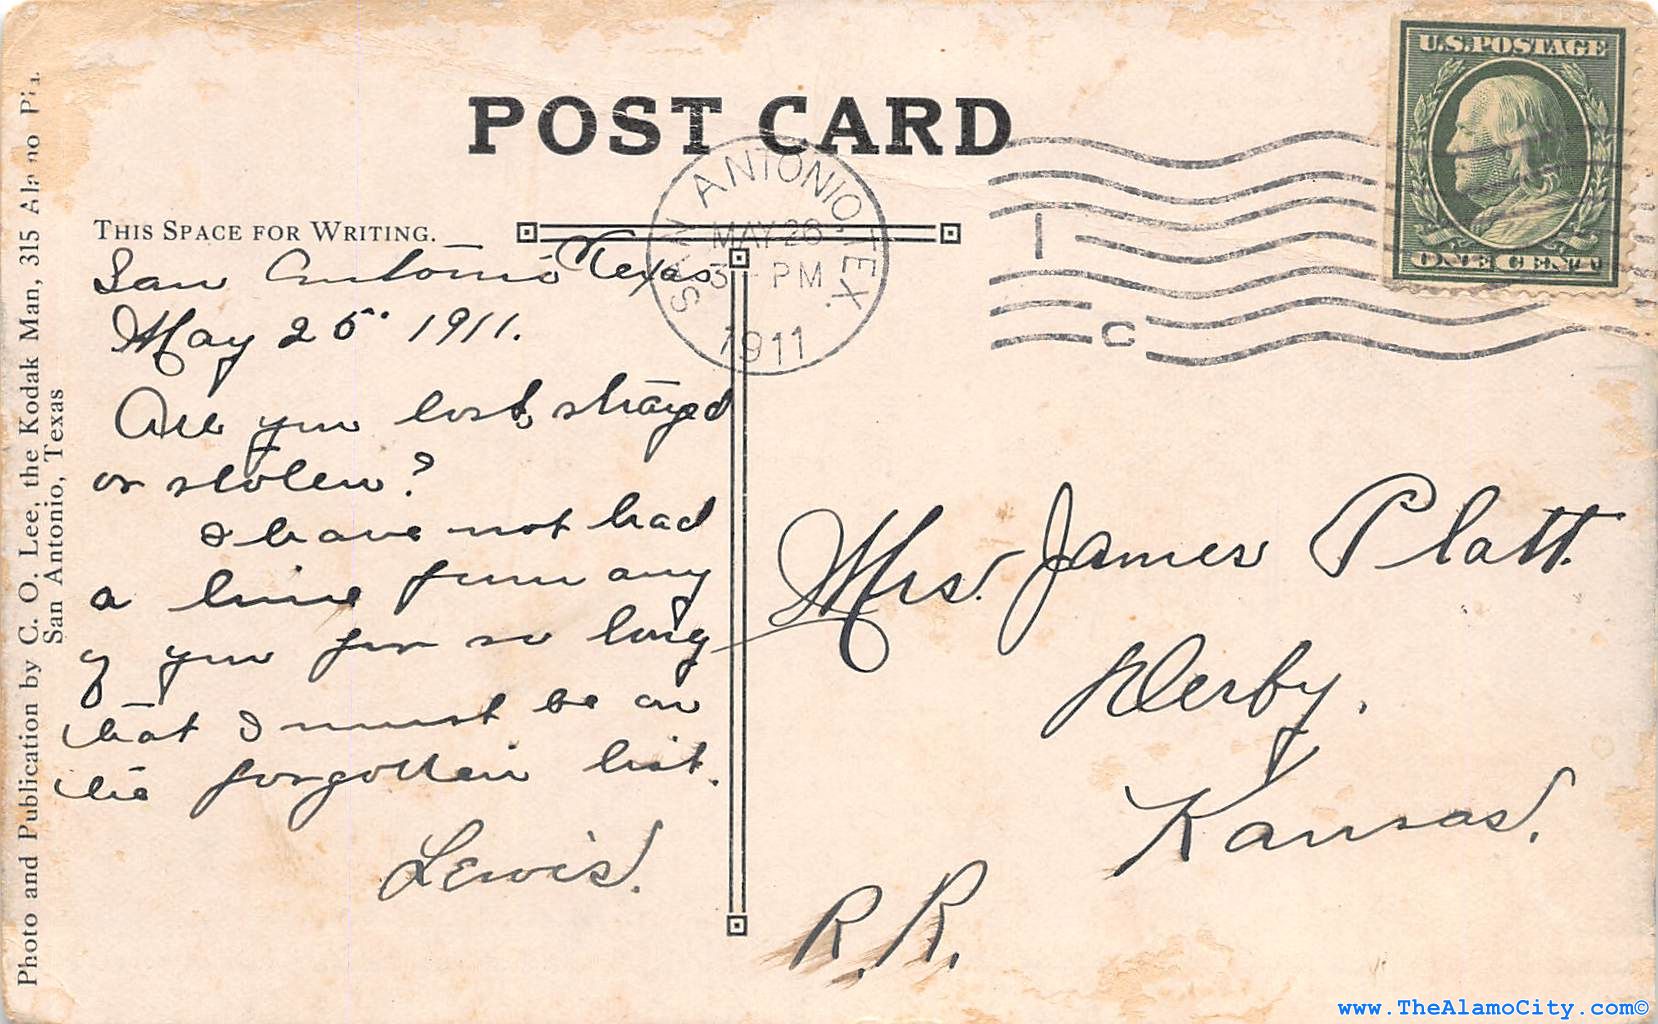 POST CARD
U.S. POSTAGE
ONE CENT
SAN ANTONIO, TEX.
MAY 26
3 - PM
1911
1
C
THIS SPACE FOR WRITING.
San Antonio Texas
May 25" 1911.
Are you lost, strayed
or stolen?
I have not had
a line from any
of you for so long
that I must be on
the forgotten list.
Lewis.
Mrs. James Platt.
Derby,
Kansas.
R.R.
Photo and Publication by C. O. Lee, the Kodak Man, 315 Alamo Pla.
San Antonio, Texas
www.TheAlamoCity.com©